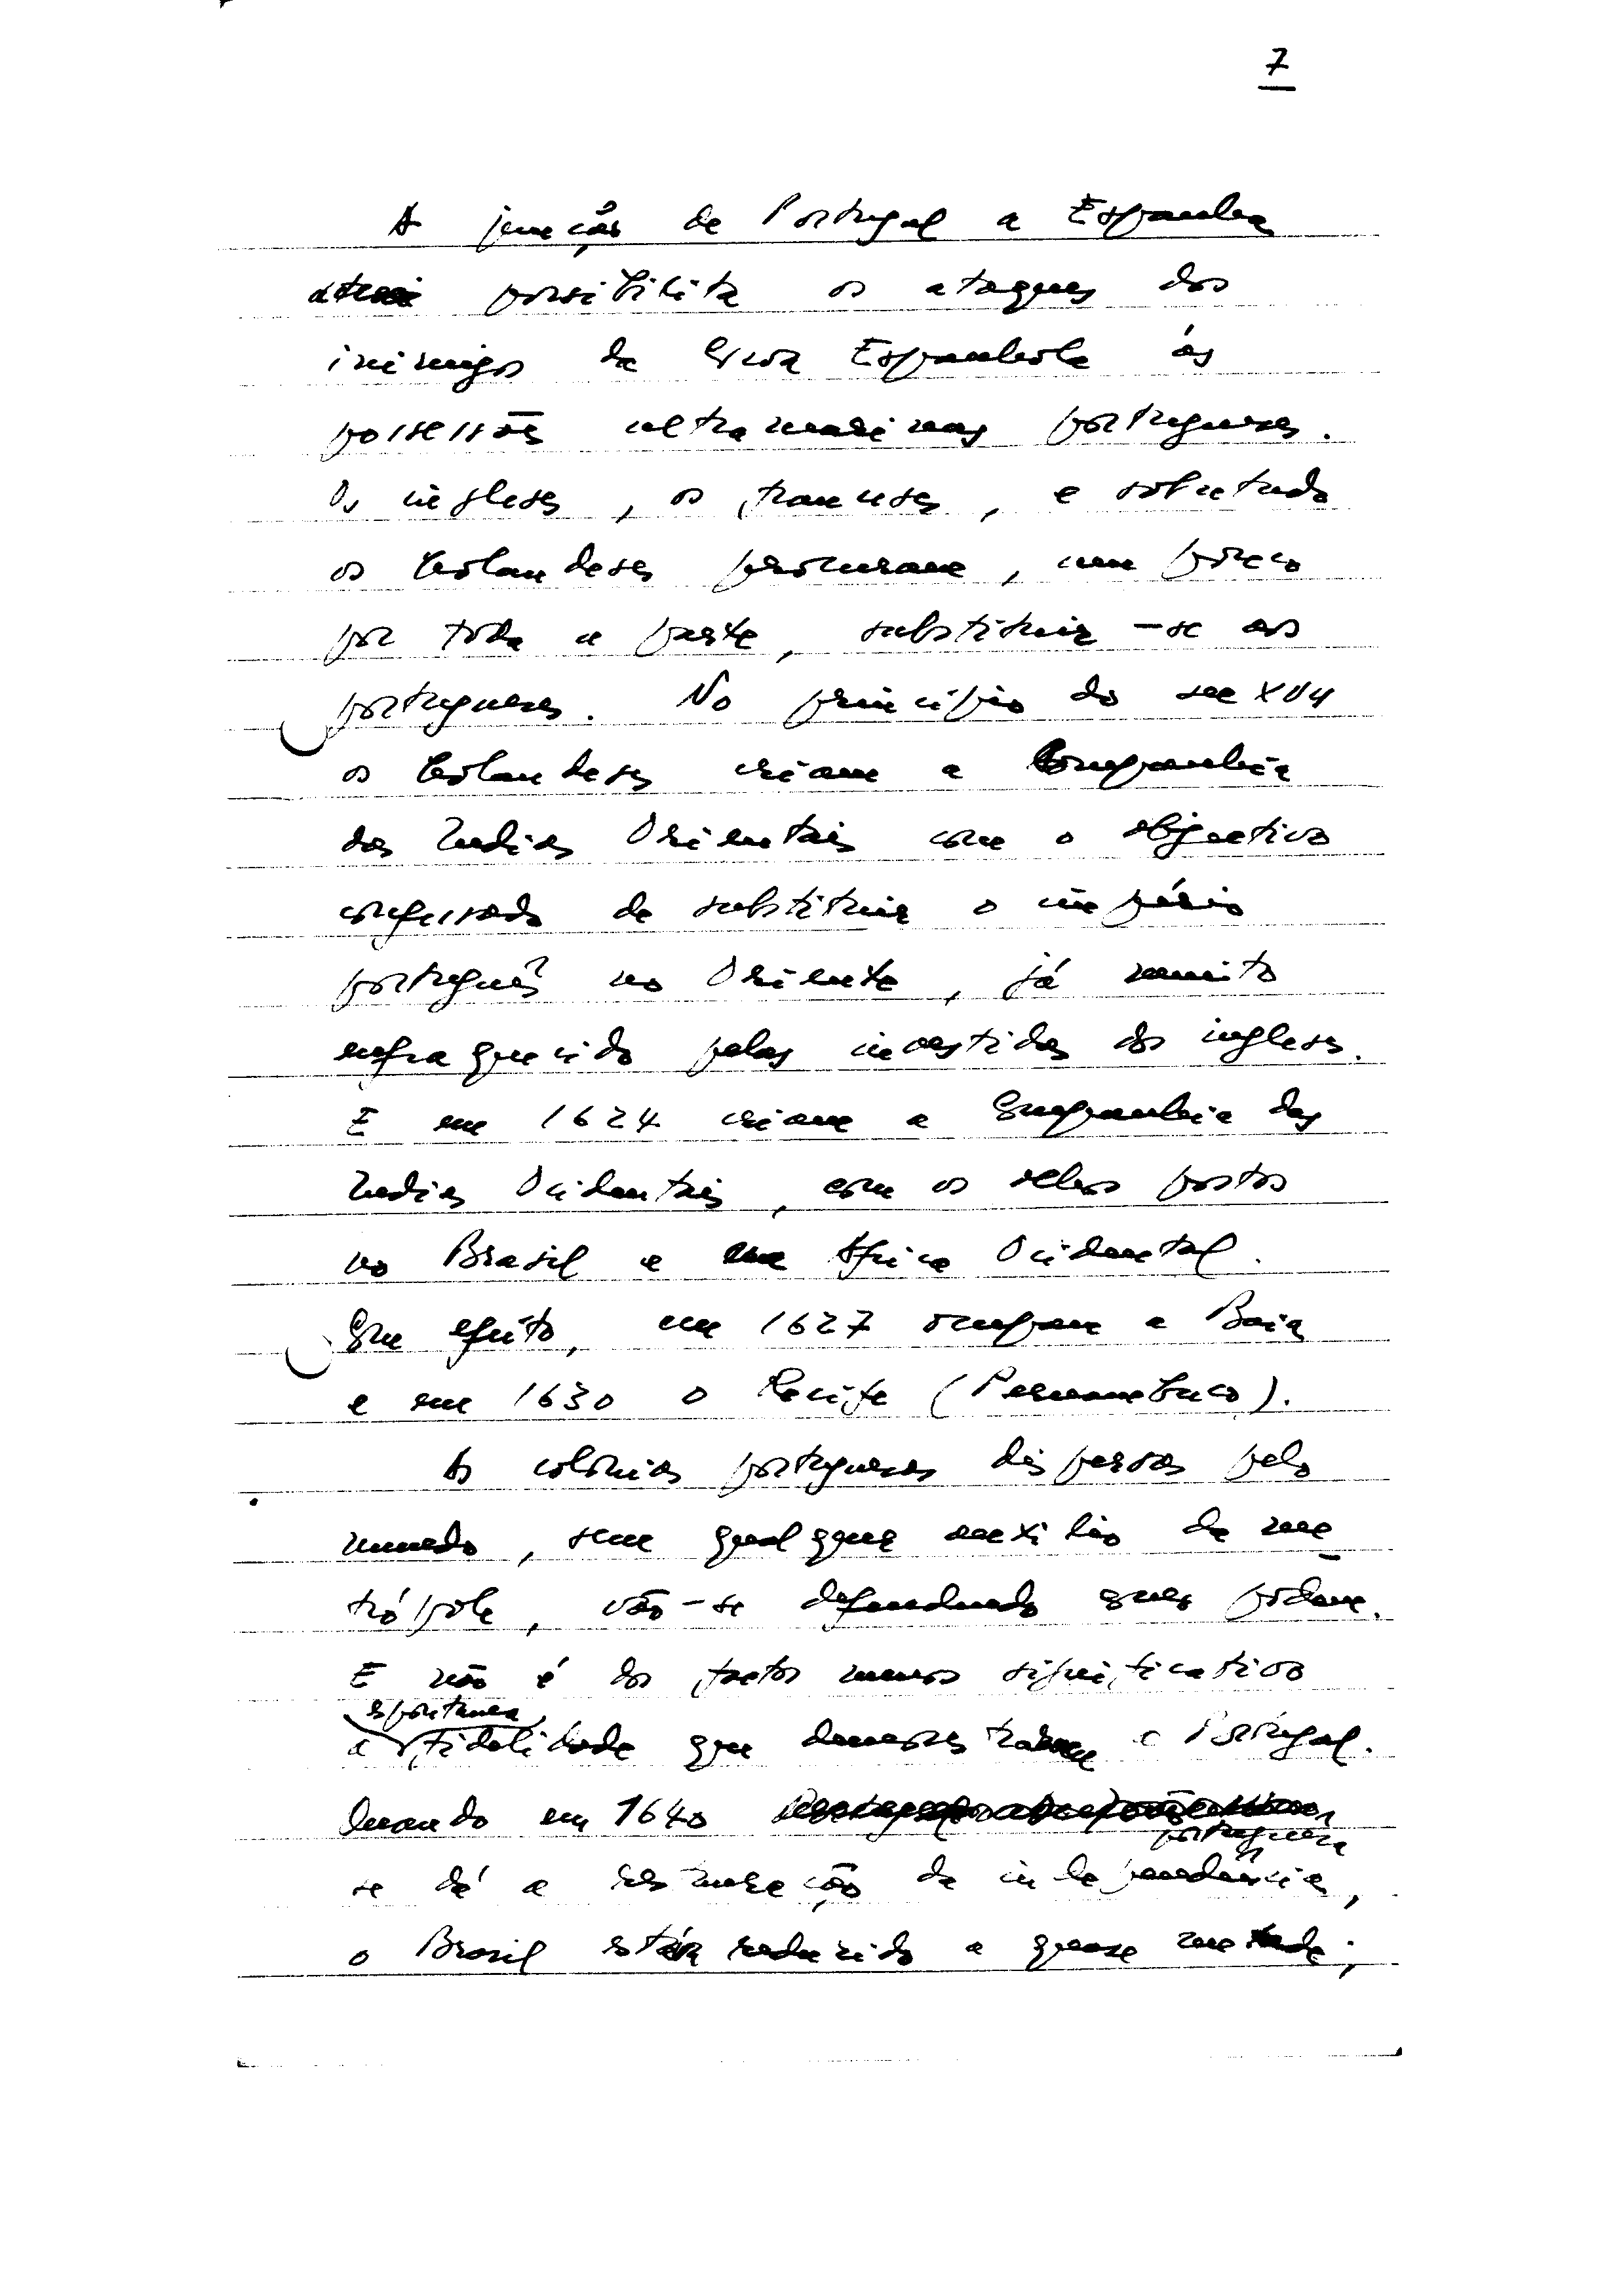 7
A junção de Portugal a Espanha
possibilita os ataques dos
inimigos da Coroa Espanhola ás
possessões ultramarinas portuguesas.
Os ingleses, os franceses, e sobretudo
os holandeses procuram, um pouco
por toda a parte, substituir-se aos
portugueses. No princípio do sec XVII
os holandeses criam a Companhia
das Indias Orientais com o objectivo
confessado de substituir o império
português no Oriente, já muito
enfraquecido pelas investidas dos ingleses.
E em 1624 criam a Companhia das
Indias Ocidentais, com os olhos postos
no Brasil e na Africa Ocidental.
Com efeito, em 1627 ocupam a Baia
e em 1630 o Recife (Pernambuco).
As colónias portuguesas dispersas pelo
mundo, sem qualquer auxilio da me-
trópole, vão-se defendendo como podem.
E não é dos factos menos significativos
a espontanea fidelidade que demonstraram a Portugal.
Quando em 1640
se dá a restauração da independência portuguesa,
o Brasil está reduzido a quase metade;